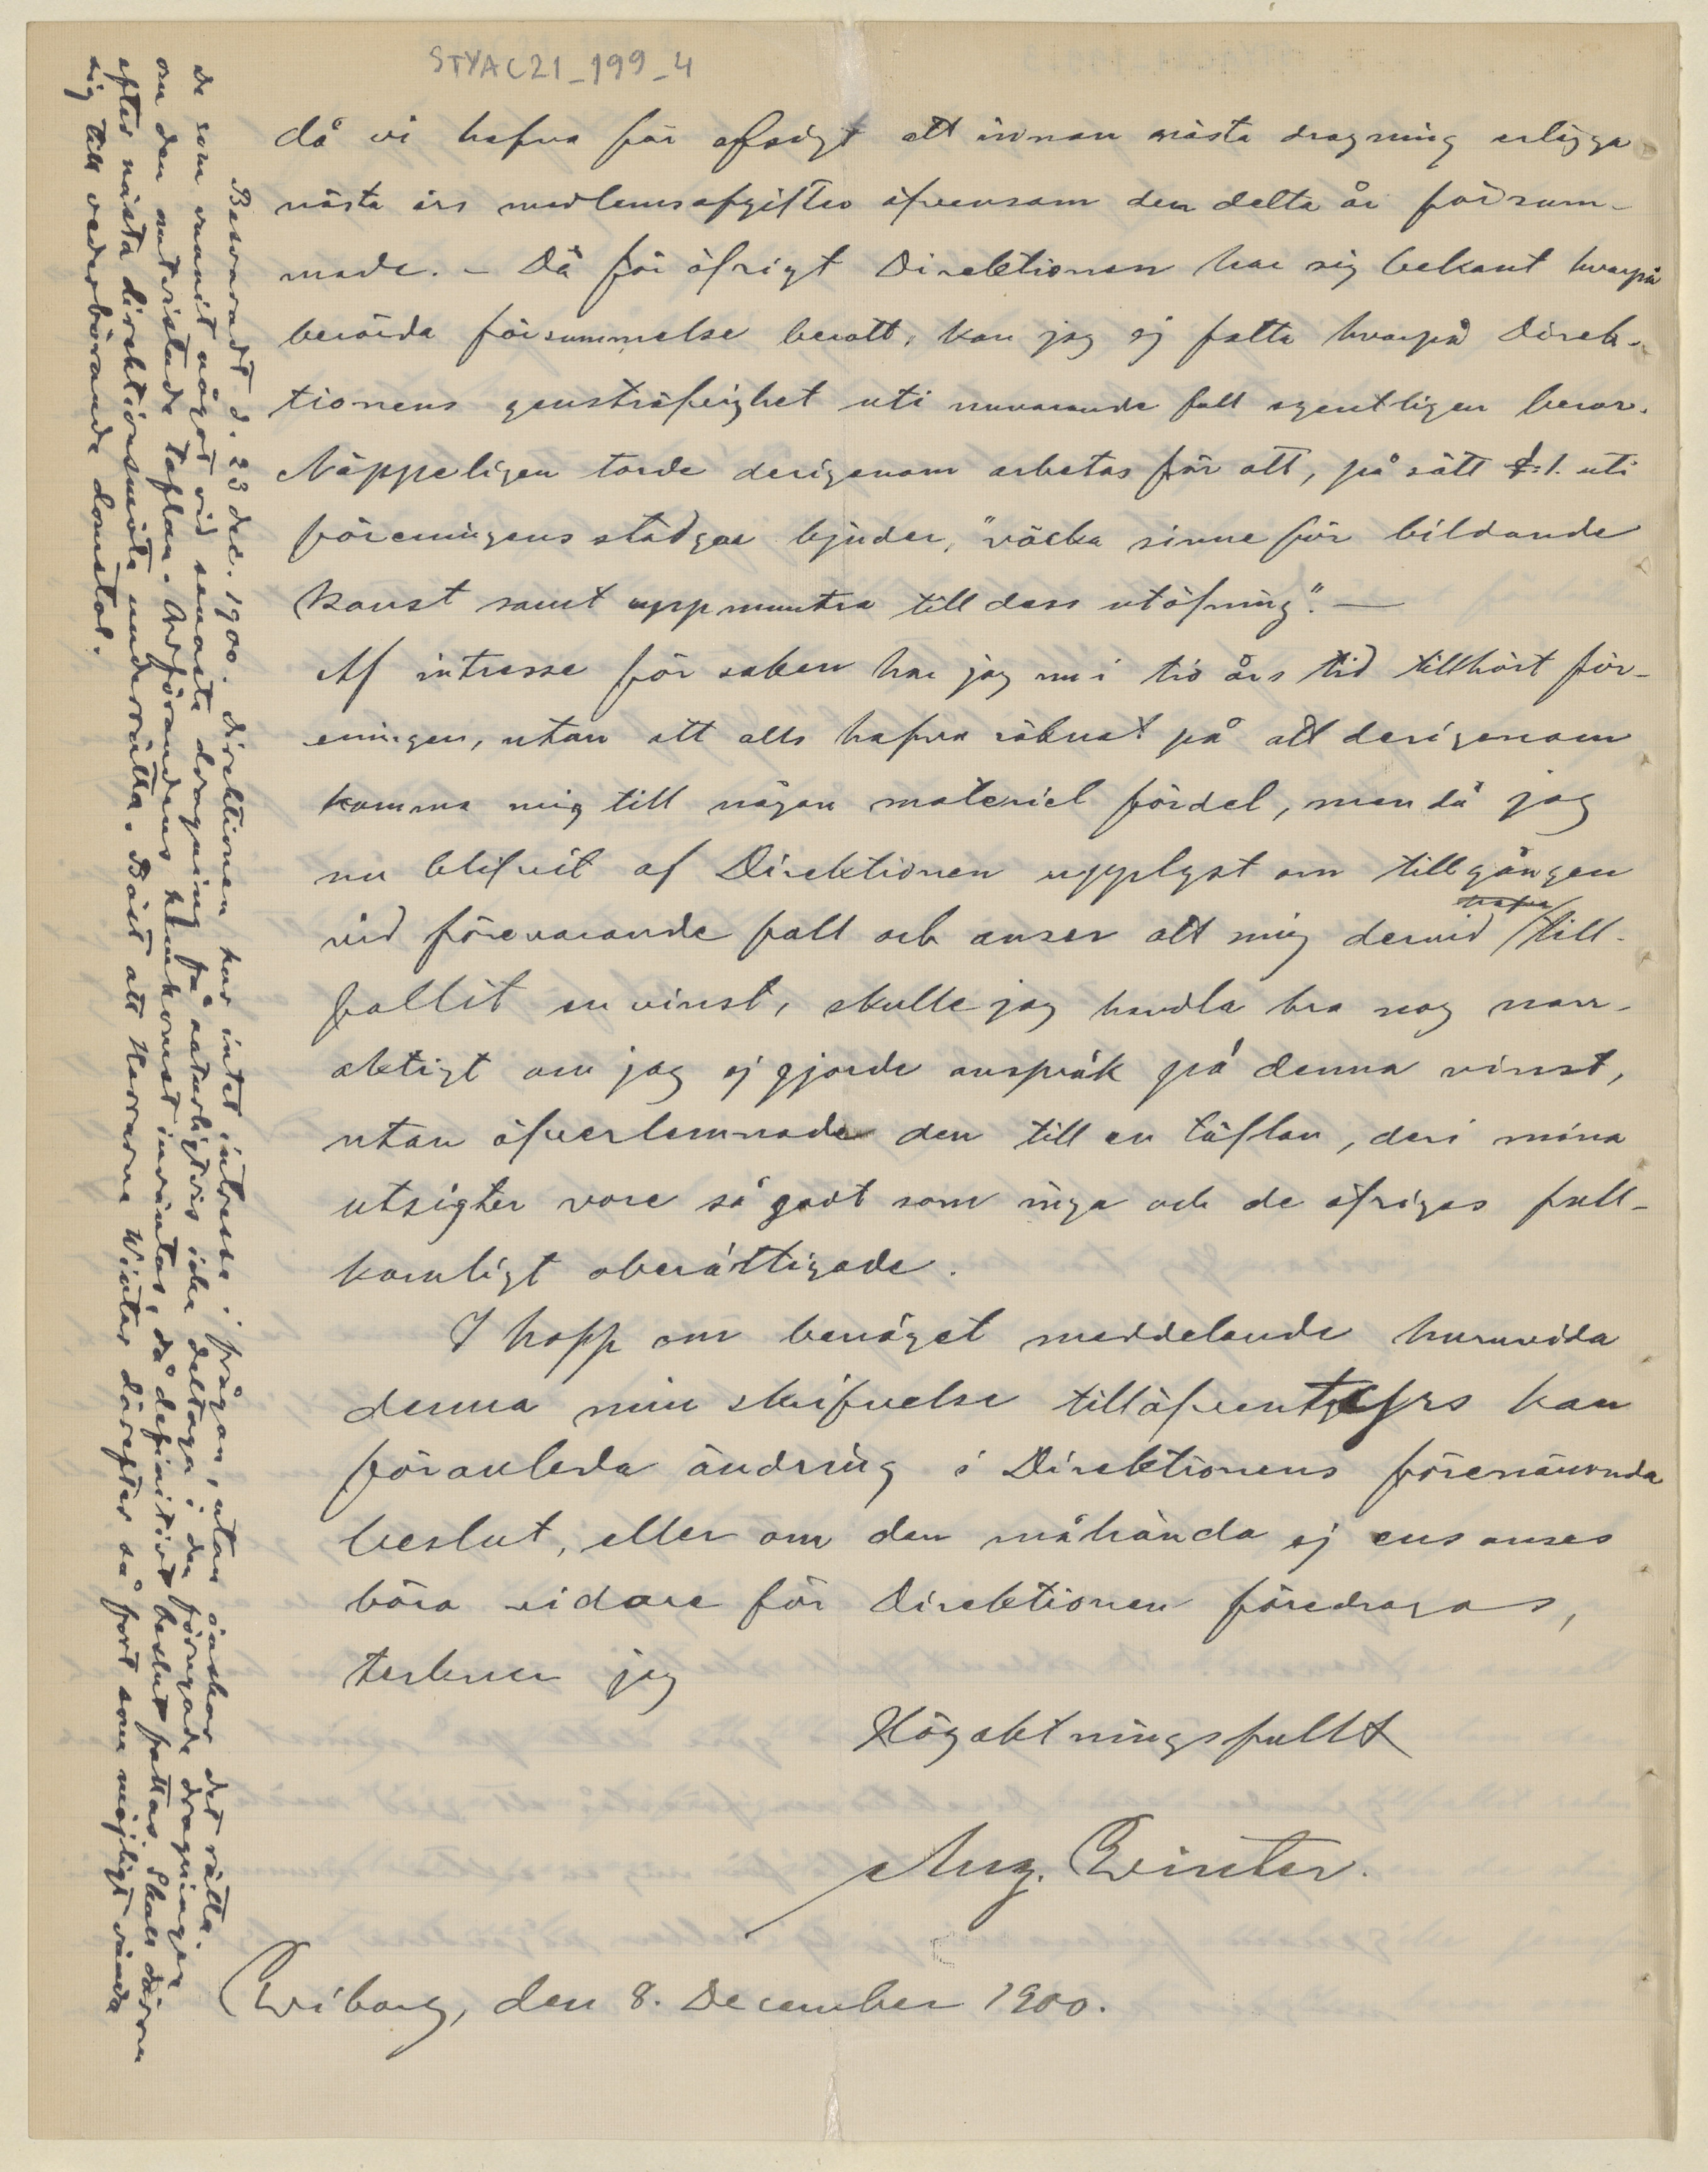 STYAC21_199_4
då vi hafva för afsigt att innan nästa dragning erlägga
nästa års medlemsafgifter äfvensom den detta år försum-
made. – Då för öfrigt Direktionen har sig bekant hvarpå
berörda försummelse berott, kan jag ej fatta hvarpå Direk-
tionens gensträfvighet uti nuvarande fall egentligen beror.
Näppeligen torde derigenom arbetas för att, på sätt §:1. uti
föreningens stadgar bjuder, "väcka sinne för bildande
konst samt uppmuntra till dess utöfning". —
Af intresse för saken har jag nu i tio års tid tillhört för-
eningen, utan att alls hafva räknat på att derigenom
komma mig till någon materiel fördel, men då jag
nu blifvit af Direktionen upplyst om tillgången
vid förevarande fall och anser att mig dervid till-
fallit en vinst, skulle jag handla bra nog narr-
aktigt om jag ej gjorde anspråk på denna vinst,
utan öfverlemnade den till en täflan, deri mina
utsigter vore så godt som inga och de öfrigas full-
komligt oberättigade.
I hopp om benäget meddelande huruvida
denna min skrifvelse tilläfventyrs kan
föranleda ändring i Direktionens förenämnda
beslut, eller om den måhända ej ens anses
böra vidare för Direktionen föredragas,
tecknar jag
Högaktningsfullt
Aug. Winter.
Wiborg, den 8. December 1900.
Besvaradt d. 23 dec. 1900. Direktionen har intet intresse i frågan, utan önskar det rätta.
De som vunnit något vid senaste dragning få naturligtvis icke deltaga i den förnyade dragningen
om den omtvistade taflan. Ordförandens hemkomst inväntas, då definitivt beslut fattas. Skall derom
efter nästa direktionsmöte underrätta. Bäst att Herrarne Winter därefter så fort som möjligt vända
sig till vederbörande domstol.